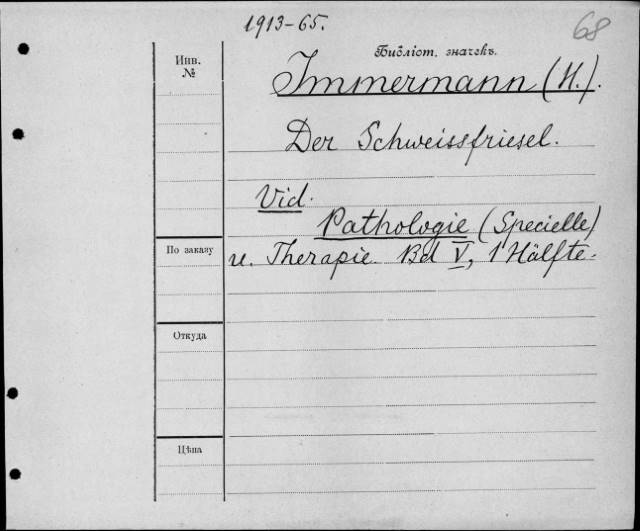 1913-65.
68
Инв.
№
Библіот. значекъ.
Immermann (H.).
Der Schweissfriesel.
Vid.
Pathologie (Specielle)
По заказу
u. Therapie. Bd V, 1 Hälfte.
Откуда
Цѣна